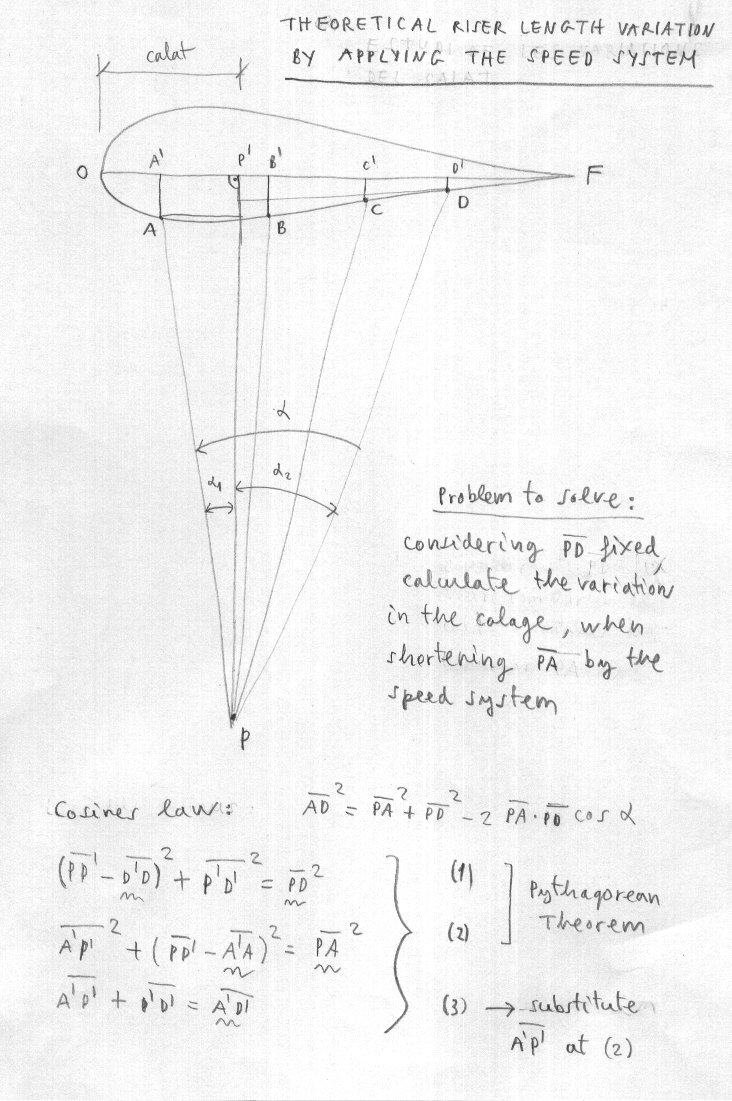 THEORETICAL RISER LENGTH VARIATION
BY APPLYING THE SPEED SYSTEM
calat
O A' P' B' C' D' F
A B C D
α
α1 α2
P
Problem to solve:
considering PD fixed,
calculate the variation
in the calage, when
shortening PA by the
speed system
Cosines law: AD² = PA² + PD² - 2 PA·PD cos α
(PP' - D'D)² + P'D'² = PD² (1)
Pythagorean
Theorem
A'P'² + (PP' - A'A)² = PA² (2)
A'P' + P'D' = A'D' (3) → substitute
A'P' at (2)